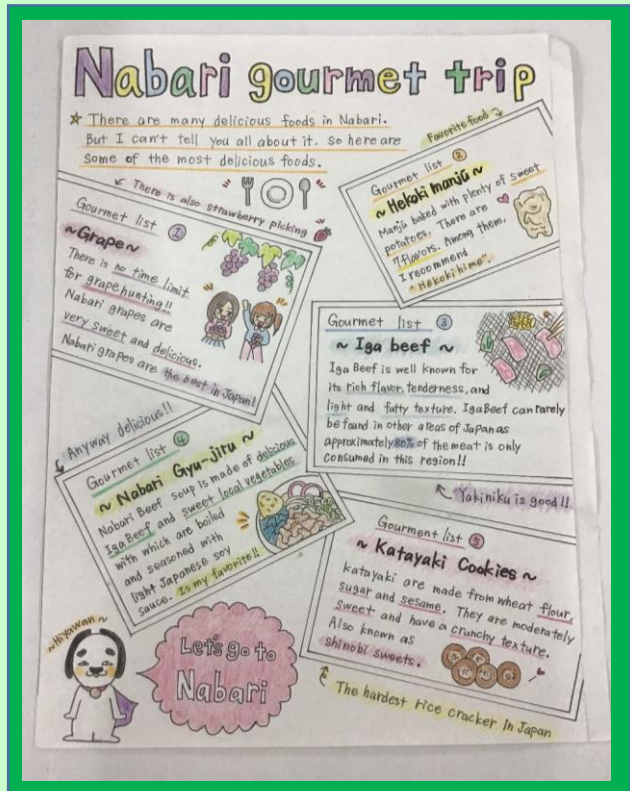 Nabari gourmet trip
☆ There are many delicious foods in Nabari.
But I can't tell you all about it. So here are
some of the most delicious foods.
There is also strawberry picking
Gourmet list ①
~Grape~
There is no time limit
for grape hunting!!
Nabari grapes are
very sweet and delicious.
Nabari grapes are the best in Japan!
Favorite food
Gourmet list ②
~ Hekoki manjū ~
Manjū baked with plenty of sweet
potatoes. There are
7 flavors. Among them,
I recommend
"Hekoki hime".
Gourmet list ③
~ Iga beef ~
Iga Beef is well known for
its rich flavor, tenderness, and
light and fatty texture. Iga Beef can rarely
be found in other areas of Japan as
approximately 80% of the meat is only
consumed in this region!!
Yakiniku is good!!
Anyway delicious!!
Gourmet list ④
~ Nabari Gyu-jiru ~
Nabari Beef soup is made of delicious
Iga Beef and sweet local vegetables
with which are boiled
and seasoned with
light Japanese soy
sauce. Is my favorite!!
Gourment list ⑤
~ Katayaki Cookies ~
katayaki are made from wheat flour,
sugar and sesame. They are moderately
sweet and have a crunchy texture.
Also known as
shinobi sweets.
The hardest rice cracker In Japan
~Hiyawan~
Let's go to
Nabari